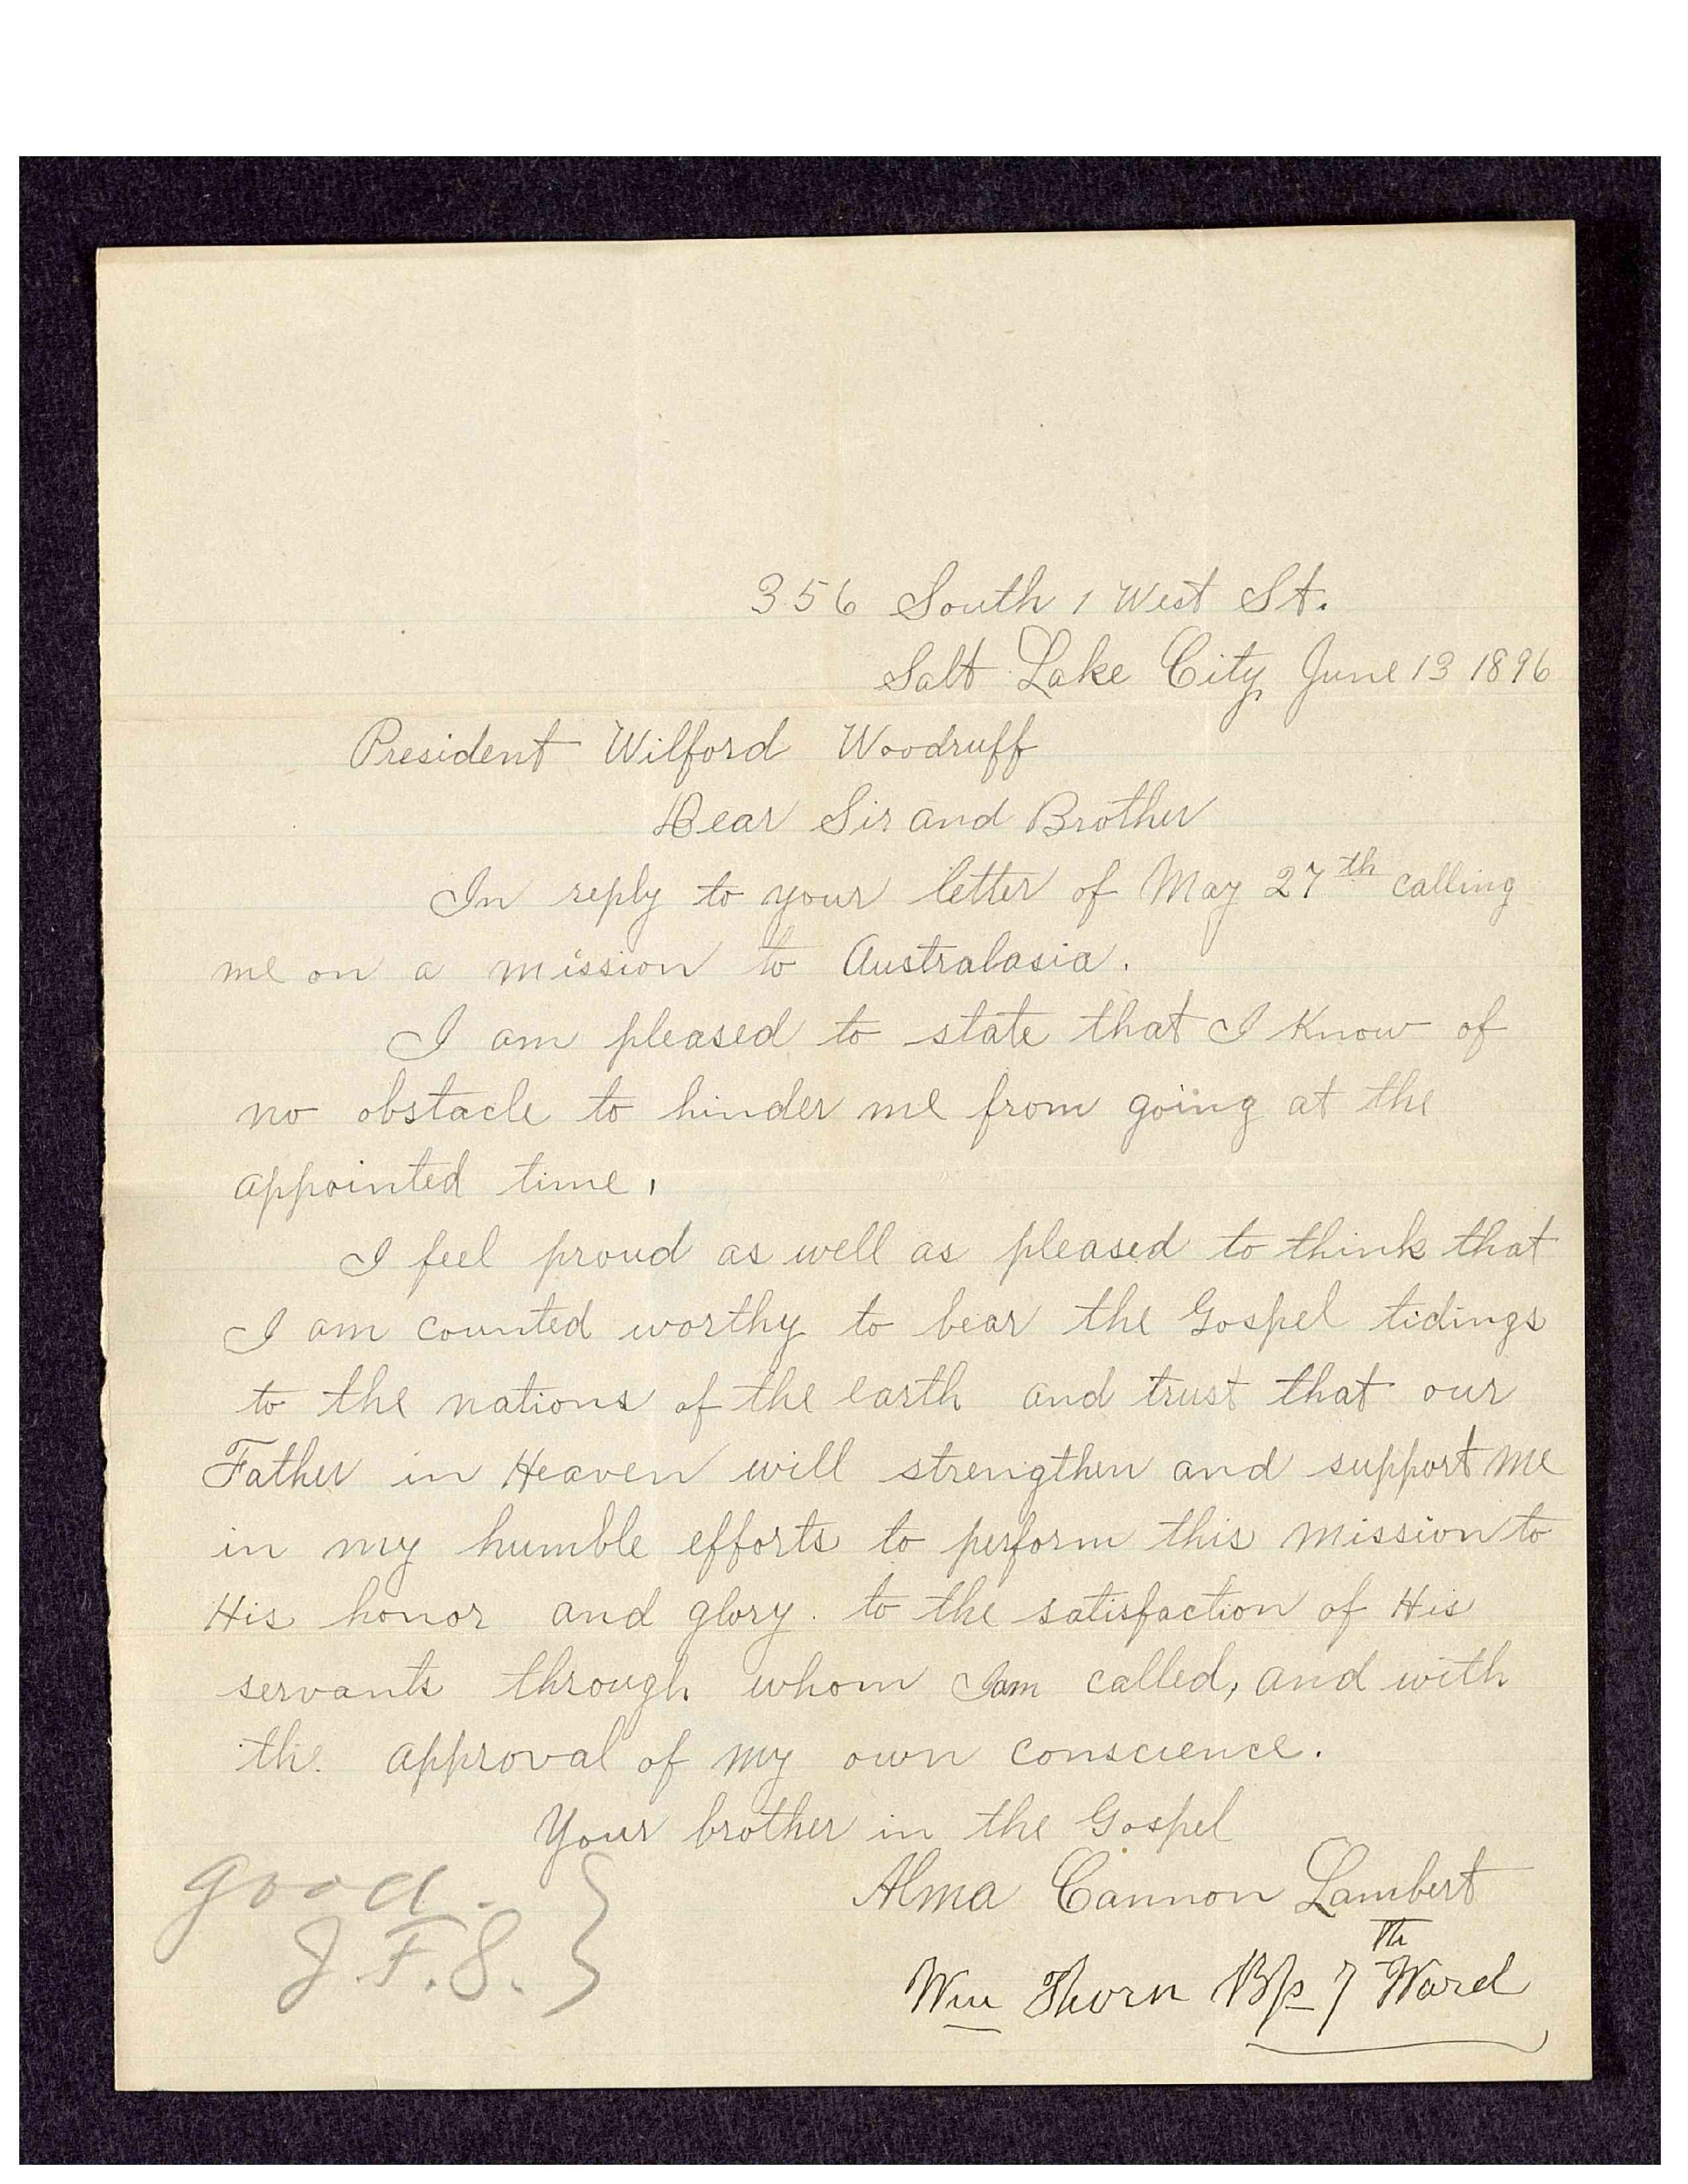 356 South 1 West St.
Salt Lake City, June 13 1896
President Wilford Woodruff
Dear Sir and Brother
In reply to your letter of May 27th calling
me on a mission to Australasia.
I am pleased to state that I know of
no obstacle to hinder me from going at the
appointed time.
I feel proud as well as pleased to think that
I am counted worthy to bear the Gospel tidings
to the nations of the earth and trust that our
Father in Heaven will strengthen and support me
in my humble efforts to perform this mission to
His honor and glory. to the satisfaction of His
servants through whom I am called, and with
the approval of my own conscience.
Your brother in the Gospel
Alma Cannon Lambert
Wm Thorn Bp 7th Ward
good.
J.F.S. }